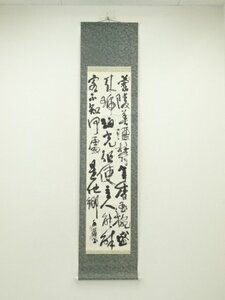 蘭陵美酒鬱金香玉椀盛
來琥珀光但使主人能醉
客不知何處是他鄉